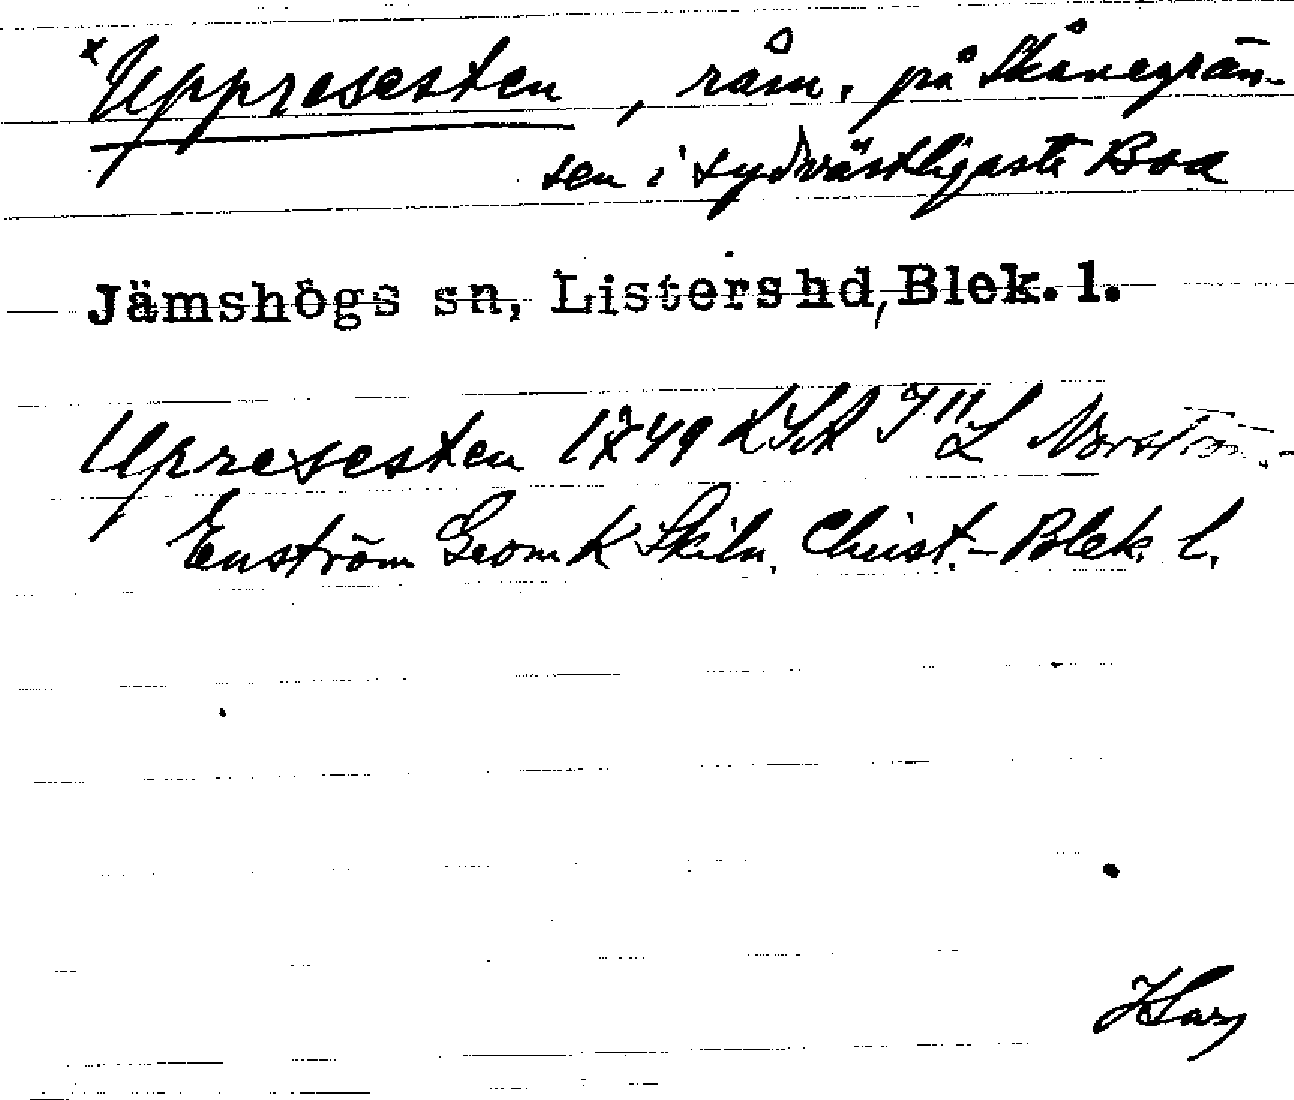 *Uppresesten, råm. på Skånegrän-
sen i sydvästligaste Boa
Jämshögs sn, Listers hd, Blek. l.
Upresesten 1749 LSA
Enström Geom K Skiln. Christ.- Blek. l.